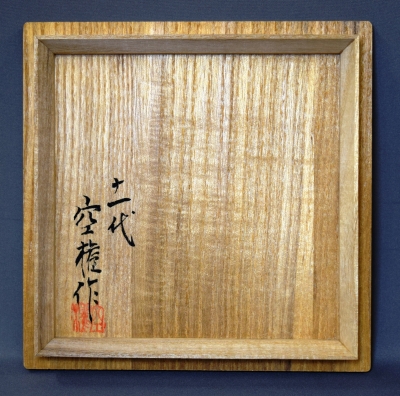 十一代
空権作